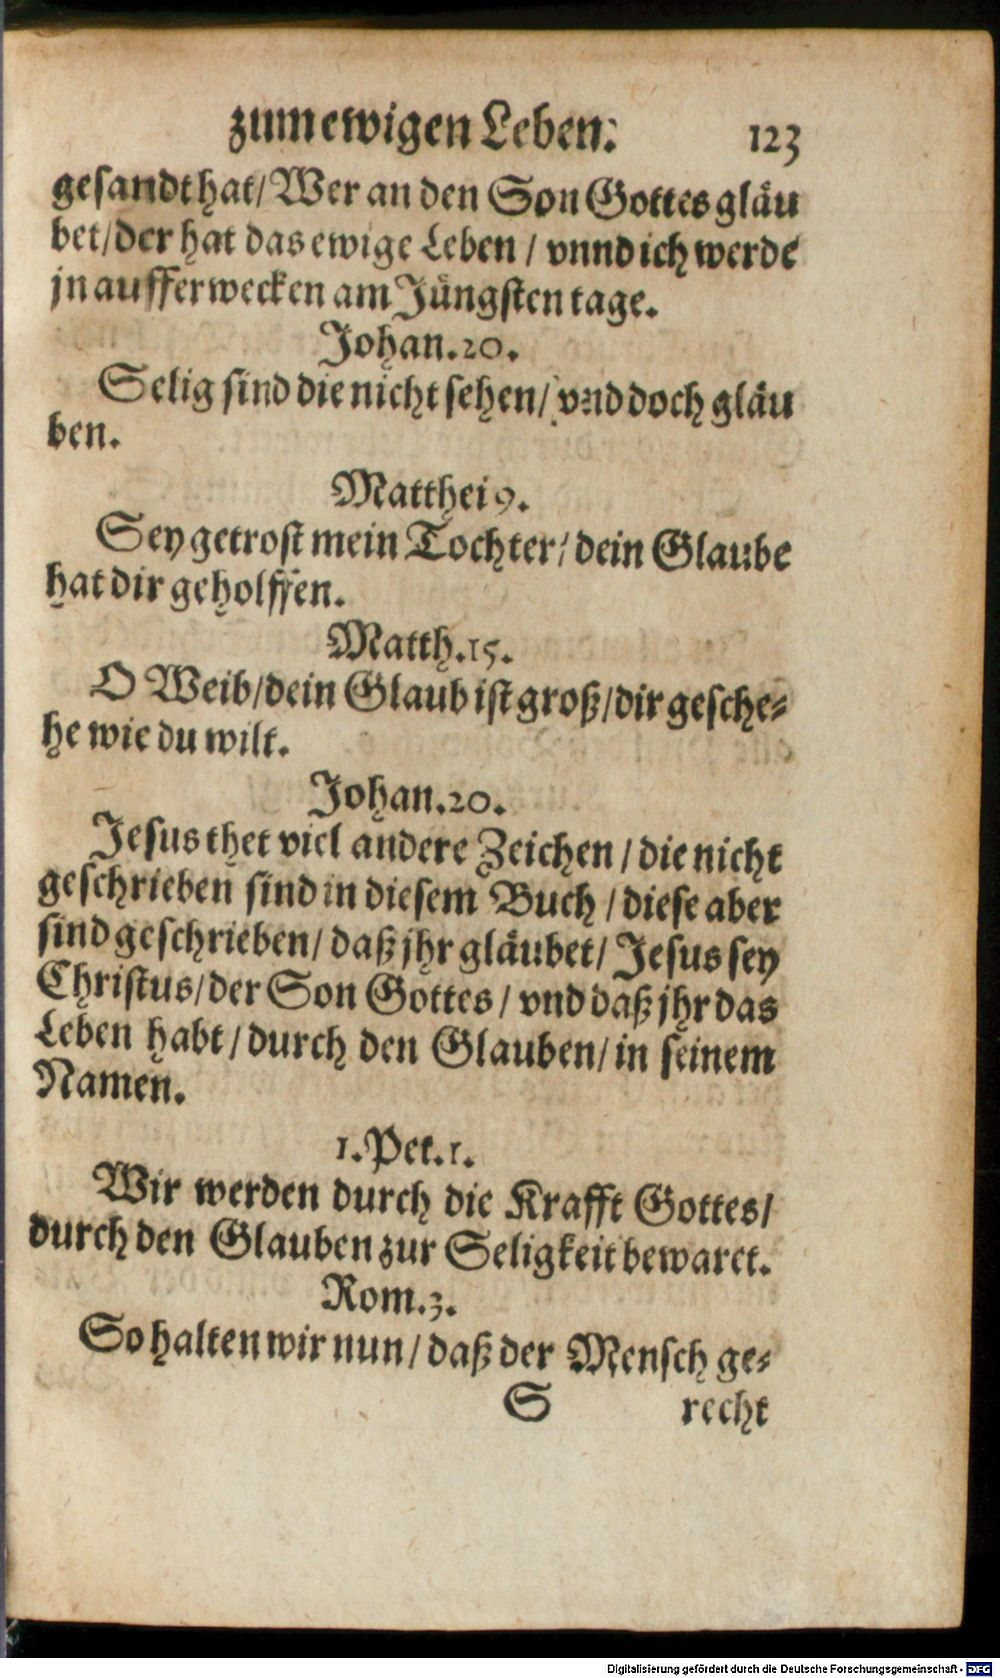 zum ewigen Leben. 123
gesandt hat/ Wer an den Son Gottes gläu
bet/ der hat das ewige Leben / vnnd ich werde
jn aufferwecken am Jüngsten tage.
Johan. 20.
Selig sind die nicht sehen/ vnd doch gläu
ben.
Matthei 9.
Sey getrost mein Tochter/ dein Glaube
hat dir geholffen.
Matth. 15.
O Weib/ dein Glaub ist groß/ dir gesche-
he wie du wilt.
Johan. 20.
Jesus thet viel andere Zeichen / die nicht
geschrieben sind in diesem Buch / diese aber
sind geschrieben/ daß jhr gläubet/ Jesus sey
Christus/ der Son Gottes / vnd daß jhr das
Leben habt / durch den Glauben/ in seinem
Namen.
1. Pet. 1.
Wir werden durch die Krafft Gottes/
durch den Glauben zur Seligkeit bewaret.
Rom. 3.
So halten wir nun / daß der Mensch ge-
S recht
Digitalisierung gefördert durch die Deutsche Forschungsgemeinschaft - DFG